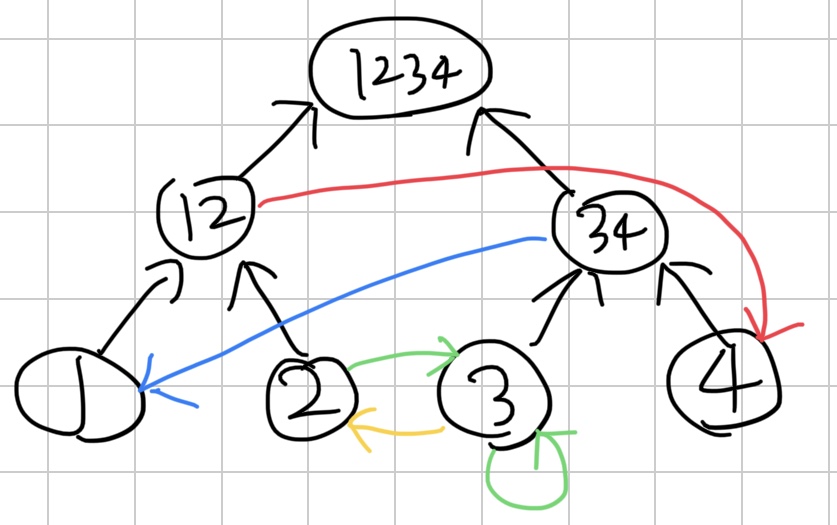 1234
12
34
1
2
3
4